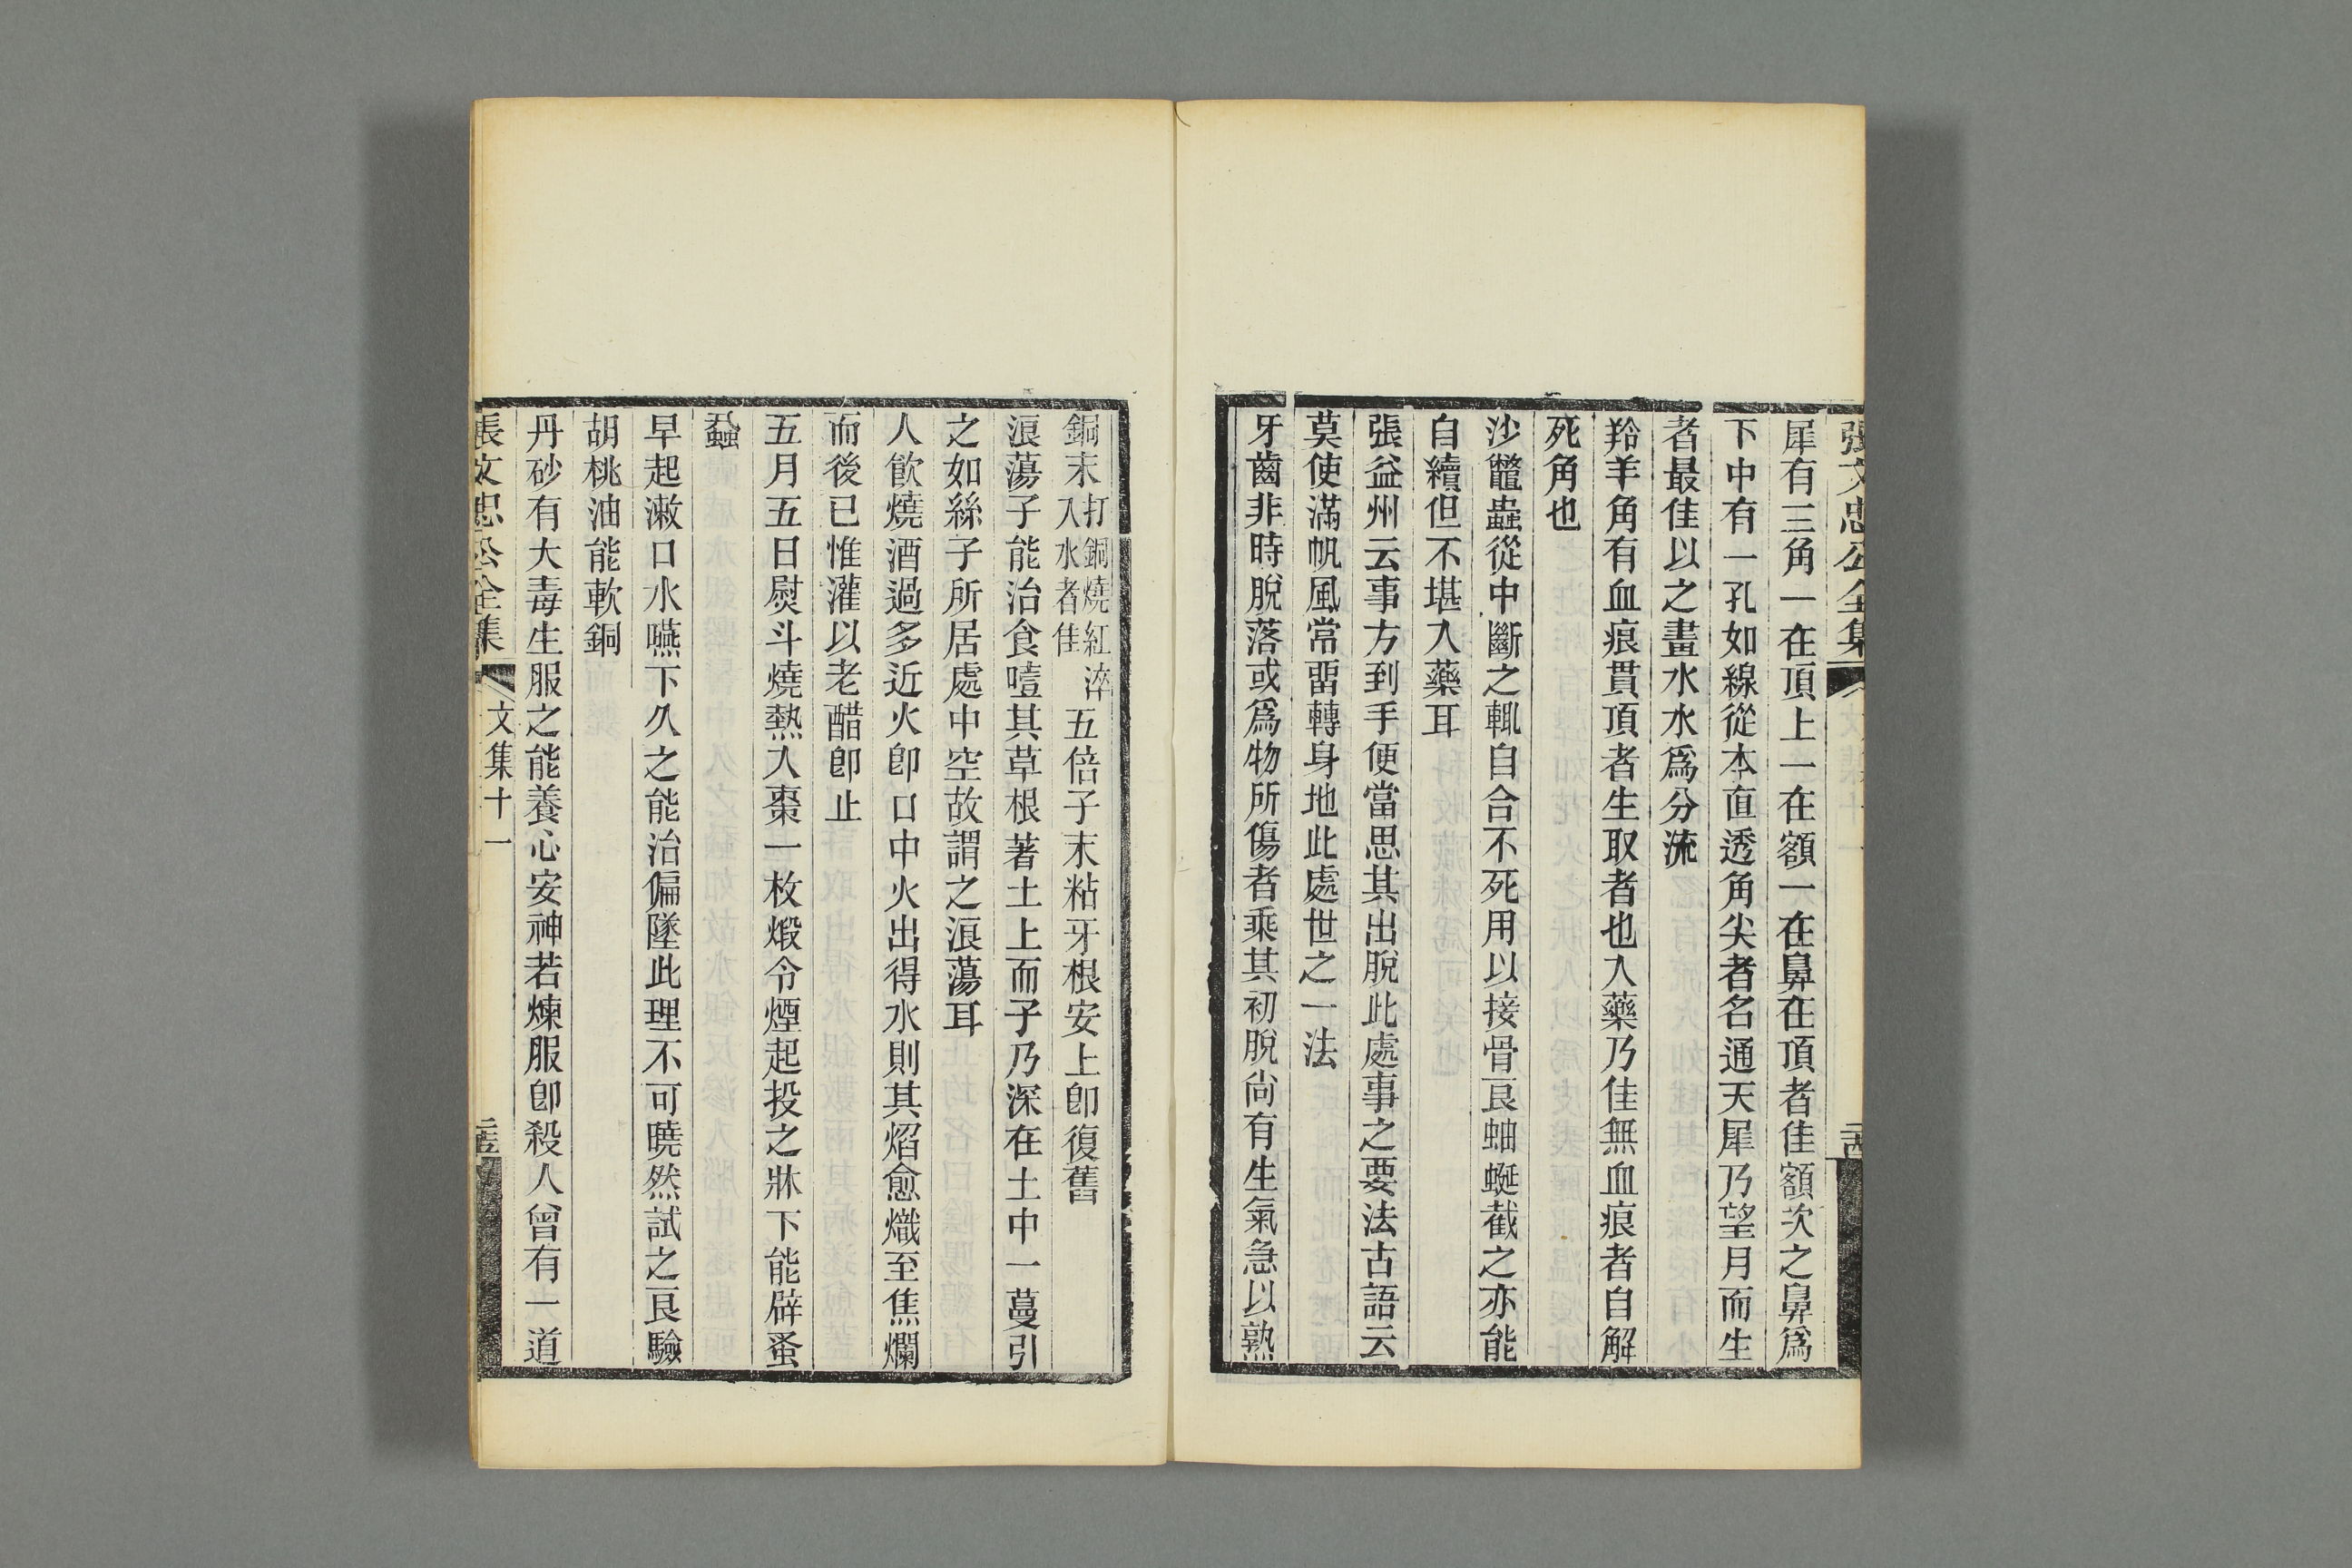 張文忠公全集
犀有三角一在頂上一在額一在鼻在頂者佳額次之鼻爲
下中有一孔如線從本直透角尖者名通天犀乃望月而生
者最佳以之畫水水爲分流
羚羊角有血痕貫頂者生取者也入藥乃佳無血痕者自解
死角也
沙鼈蟲從中斷之輒自合不死用以接骨良蚰蜒截之亦能
自續但不堪入藥耳
張益州云事方到手便當思其出脫此處事之要法古語云
莫使滿帆風常畱轉身地此處世之一法
牙齒非時脫落或爲物所傷者乘其初脫尙有生氣急以熟
銅末打銅燒紅淬入水者佳五倍子末粘牙根安上卽復舊
浪蕩子能治食噎其草根著土上而子乃深在土中一蔓引
之如絲子所居處中空故謂之浪蕩耳
人飮燒酒過多近火卽口中火出得水則其焰愈熾至焦爛
而後已惟灌以老醋卽止
五月五日熨斗燒熱入棗一枚煅令煙起投之牀下能辟蚤
蝨
早起漱口水嚥下久之能治偏墜此理不可曉然試之良驗
胡桃油能軟銅
丹砂有大毒生服之能養心安神若煉服卽殺人曾有一道
張文忠公全集 文集十一